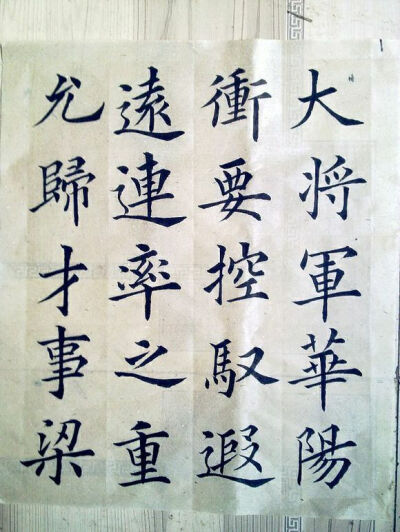 大将軍華陽
衝要控馭遐
遠連率之重
允歸才事梁